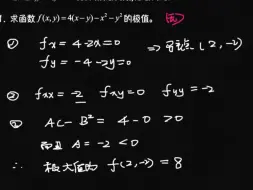 求函数 f(x,y)=4(x−y)−x²−y² 的极值。
① fx = 4-2x=0 ⇒ 驻点 (2,-2)
fy = -4-2y=0
② fxx = -2 fxy=0 fyy=-2
③ AC-B² = 4-0 >0
而且 A=-2<0
∴ 极大值为 f(2,-2)=8